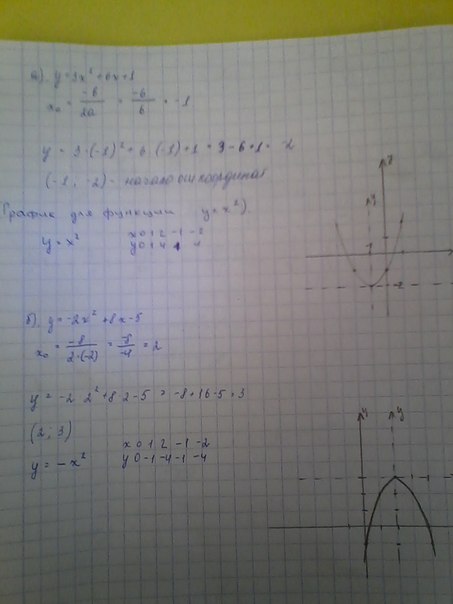 а). y = 3x² + 6x + 1
x₀ = -б/2a = -6/6 = -1
y = 3·(-1)² + 6·(-1) + 1 = 3 - 6 + 1 = -2
(-1; -2) - начало оси координат
График для функции y = x²).
y = x²
x 0 1 2 -1 -2
y 0 1 4 1 4
б). y = -2x² + 8x - 5
x₀ = -8/2·(-2) = -8/-4 = 2
y = -2·2² + 8·2 - 5 = -8 + 16 - 5 = 3
(2; 3)
y = -x²
x 0 1 2 -1 -2
y 0 -1 -4 -1 -4
y y